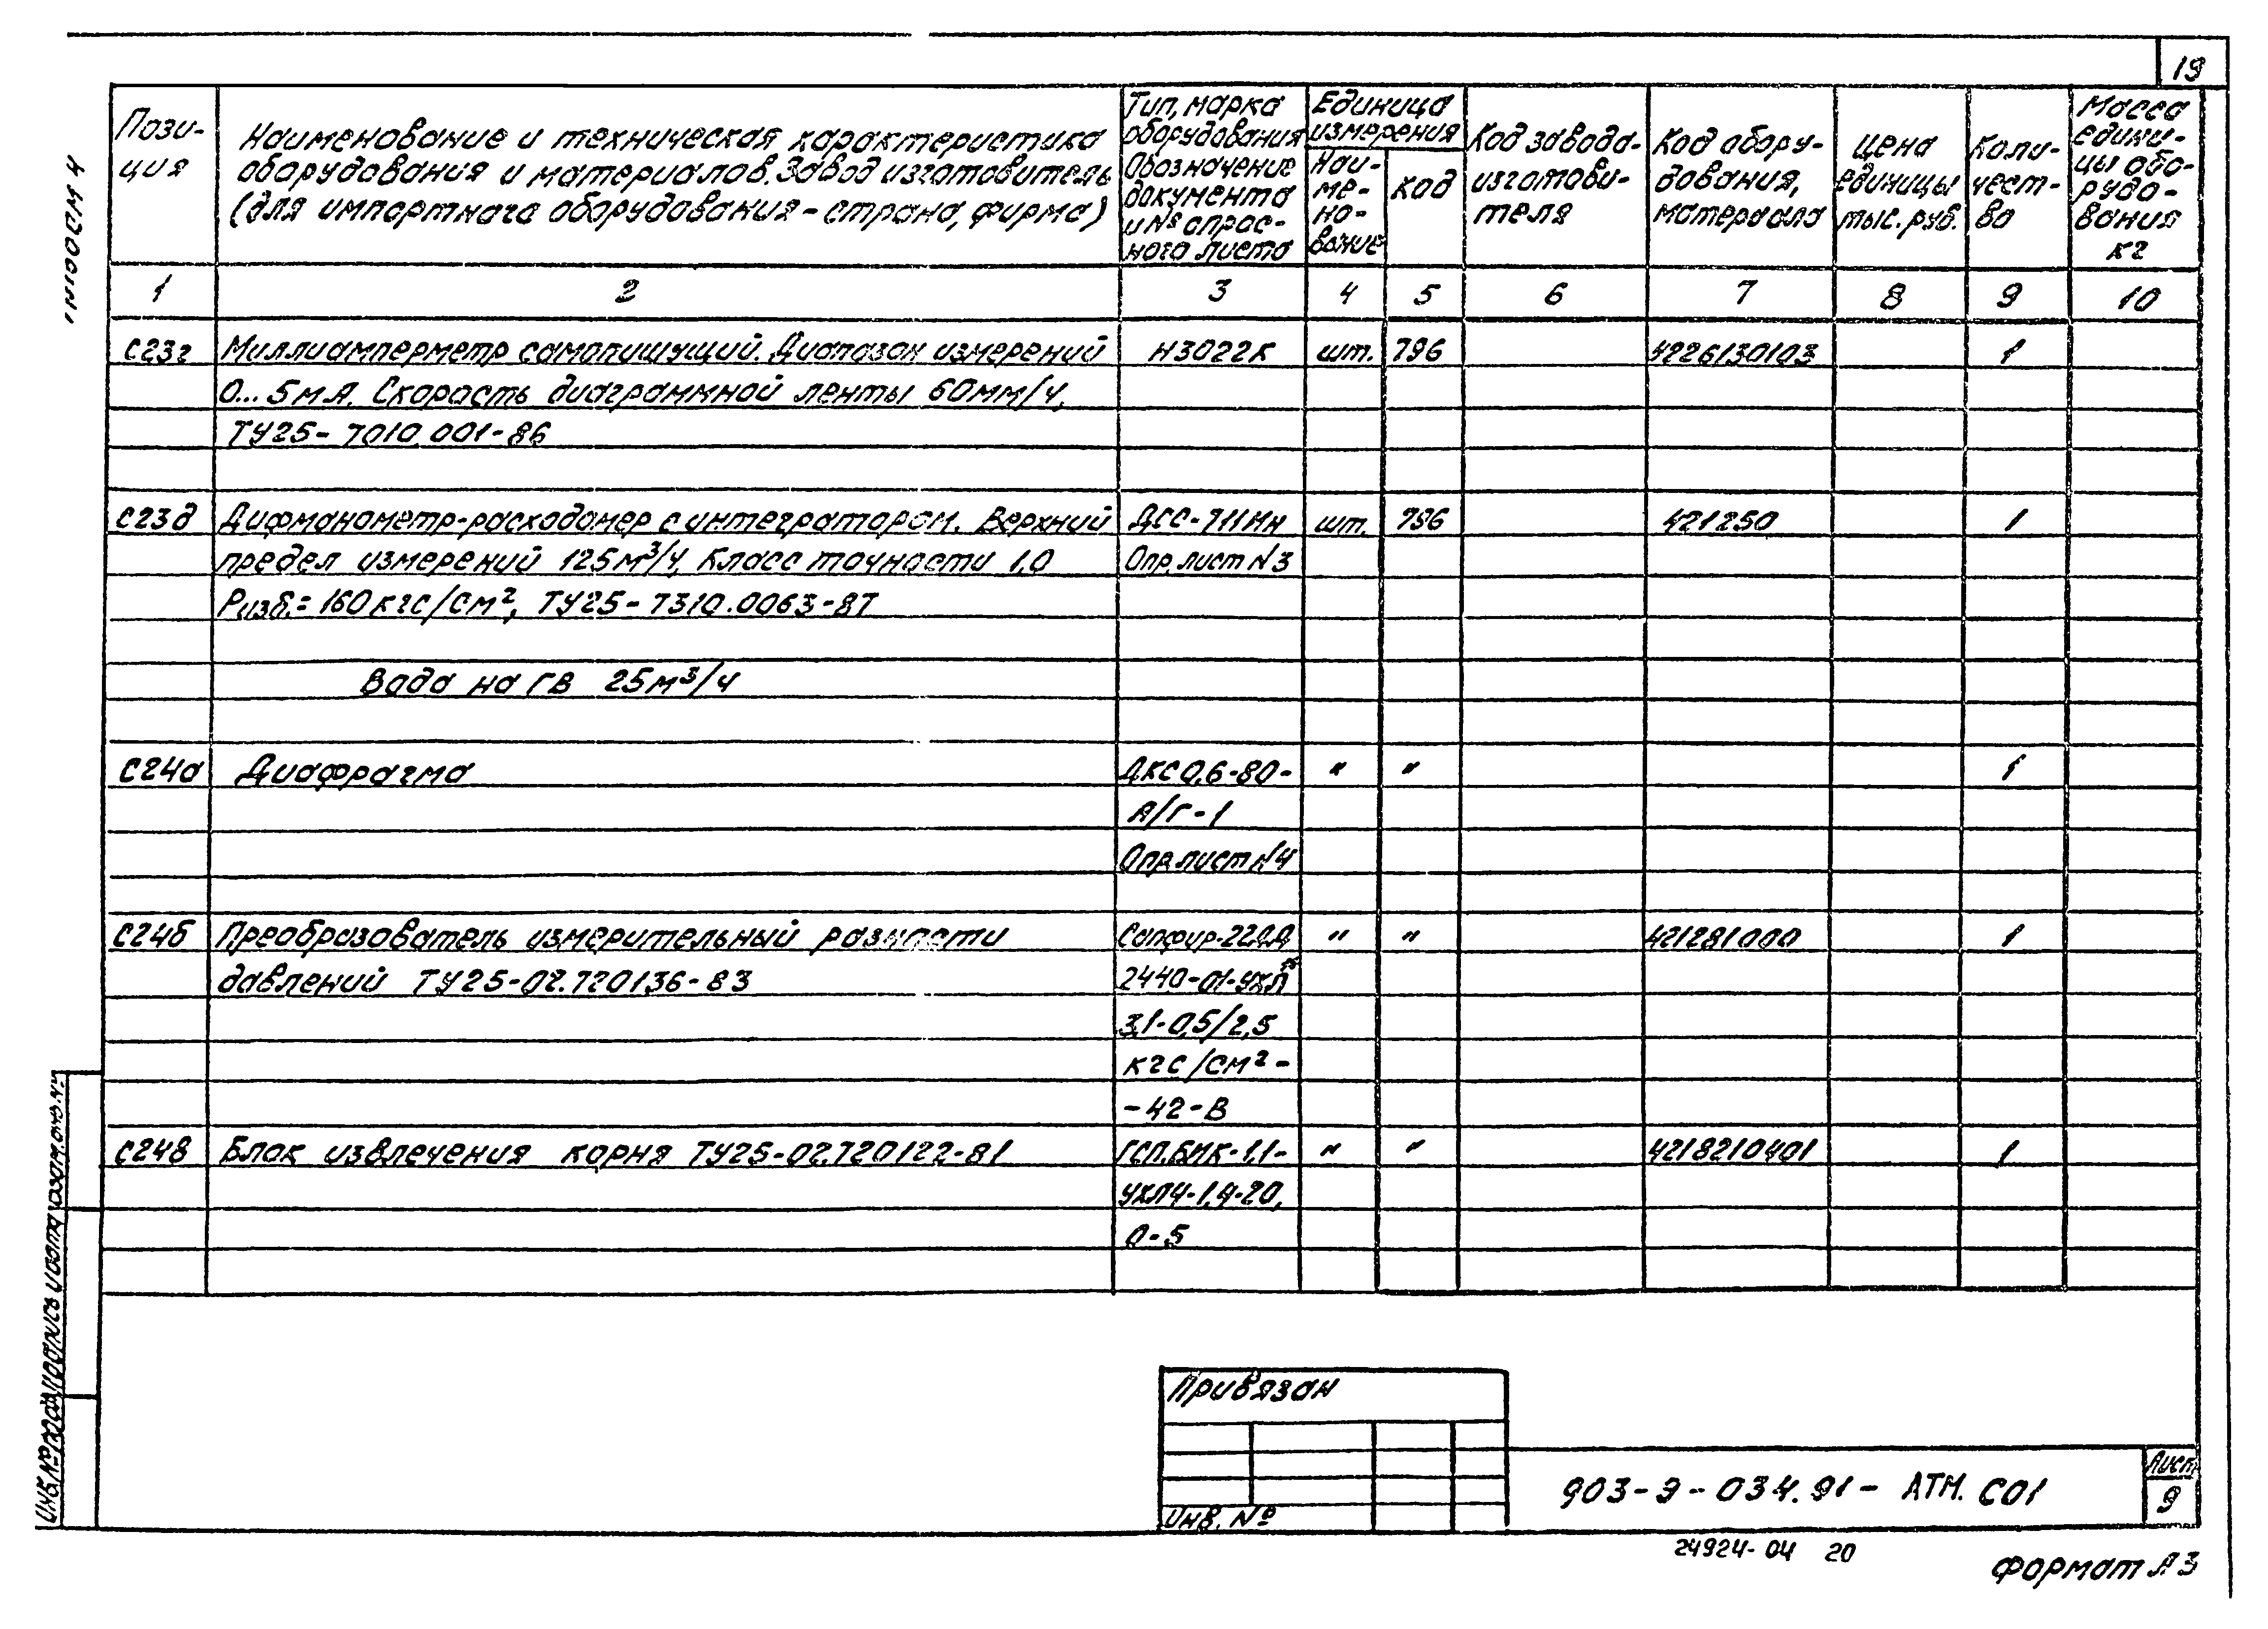 19
Пози-
ция
Наименование и техническая характеристика
оборудования и материалов. Завод изготовитель
(для импортного оборудования - страна, фирма)
Тип, марка
оборудования
Обозначение
документа
и № опрос-
ного листа
Единица
измерения
Наи-
ме-
но-
вание
код
Код завода-
изготови-
теля
Код обору-
дования,
материала
Цена
единицы
тыс. руб.
Коли-
чест-
во
Масса
едини-
цы обо-
рудо-
вания
кг
1 2 3 4 5 6 7 8 9 10
С23г Миллиамперметр самопишущий. Диапазон измерений Н3022К шт. 796 4226130103 1
0...5мА. Скорость диаграммной ленты 60мм/ч,
ТУ25-7010.001-86
С23д Дифманометр-расходомер с интегратором. Верхний ДСС-711Ин шт. 796 421250 1
предел измерений 125м³/ч, Класс точности 1,0 Опр. лист N3
Ризб.=160кгс/см², ТУ25-7310.0063-87
Вода на ГВ 25м³/ч
С24а Диафрагма ДКС0,6-80- " " 1
А/Г-1
Опр. лист N4
С24б Преобразователь измерительный разности Сапфир-22ДД " " 421281000 1
давлений ТУ25-02.720136-83 2440-01-УХЛ
3,1-0,5/2,5
кгс/см²-
-42-В
С24в Блок извлечения корня ТУ25-02.720122-81 ГСП.БИК-1.1- " " 4218210401 1
УХЛ4-1,4-20,
0-5
Привязан
Инв. №
903-9-034.91- АТМ. СО1
Лист
9
24924-04 20
Формат А3
Альбом 4
Инв.№ подл. Подпись и дата Взам.инв.№